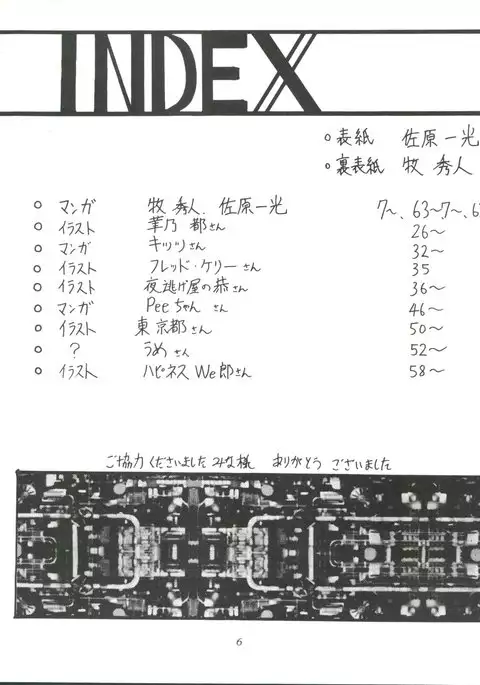 INDEX
○ 表紙 佐原一光
○ 裏表紙 牧 秀人
○ マンガ 牧 秀人. 佐原一光 7〜、63〜7〜、6
○ イラスト 華乃 都さん 26〜
○ マンガ キッツさん 32〜
○ イラスト フレッド・ケリーさん 35
○ イラスト 夜逃げ屋の恭さん 36〜
○ マンガ Peeちゃん さん 46〜
○ イラスト 東京都さん 50〜
○ ? うめ さん 52〜
○ イラスト ハピネス We郎さん 58〜
ご協力くださいました みな様 ありがとう ございました
6